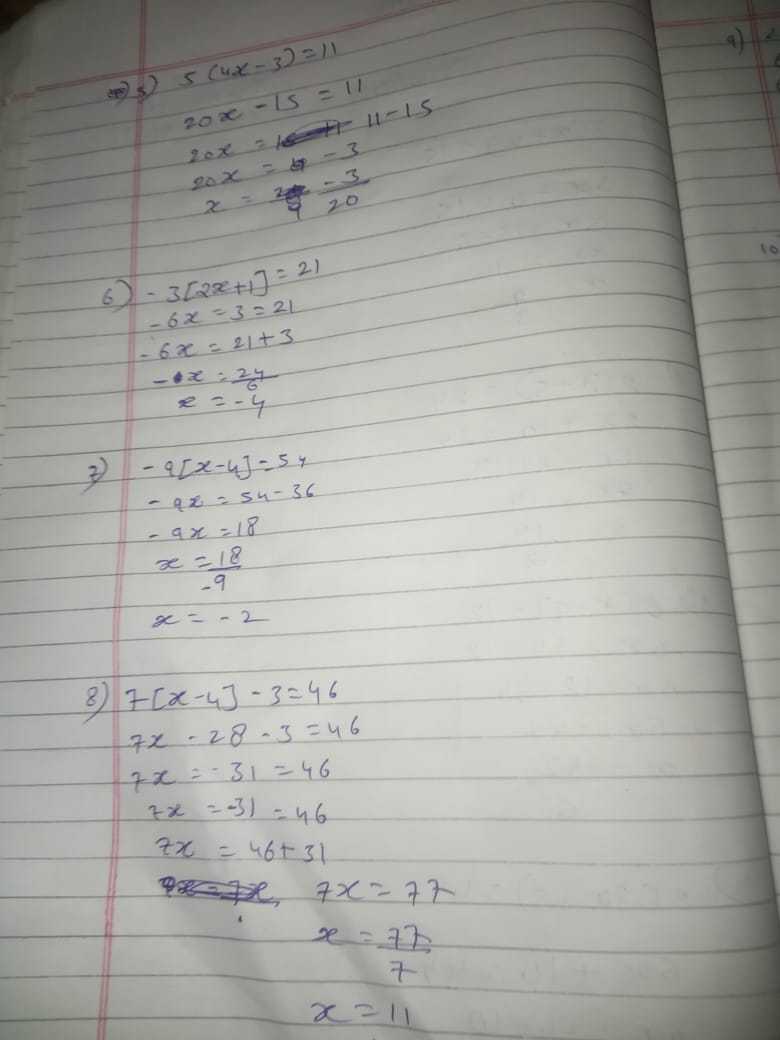 5) 5 (4x - 3) = 11
20x - 15 = 11
20x = 11 - 15
20x = - 3
x = - 3/20
6) - 3[2x+1] = 21
- 6x = 3 = 21
- 6x = 21 + 3
- x = 24/6
x = - 4
7) - 9[x-4] = 54
- 9x = 54 - 36
- 9x = 18
x = 18/-9
x = - 2
8) 7[x-4] - 3 = 46
7x - 28 - 3 = 46
7x = - 31 = 46
7x = -31 = 46
7x = 46 + 31
7x = 77
x = 77/7
x = 11
9)
10